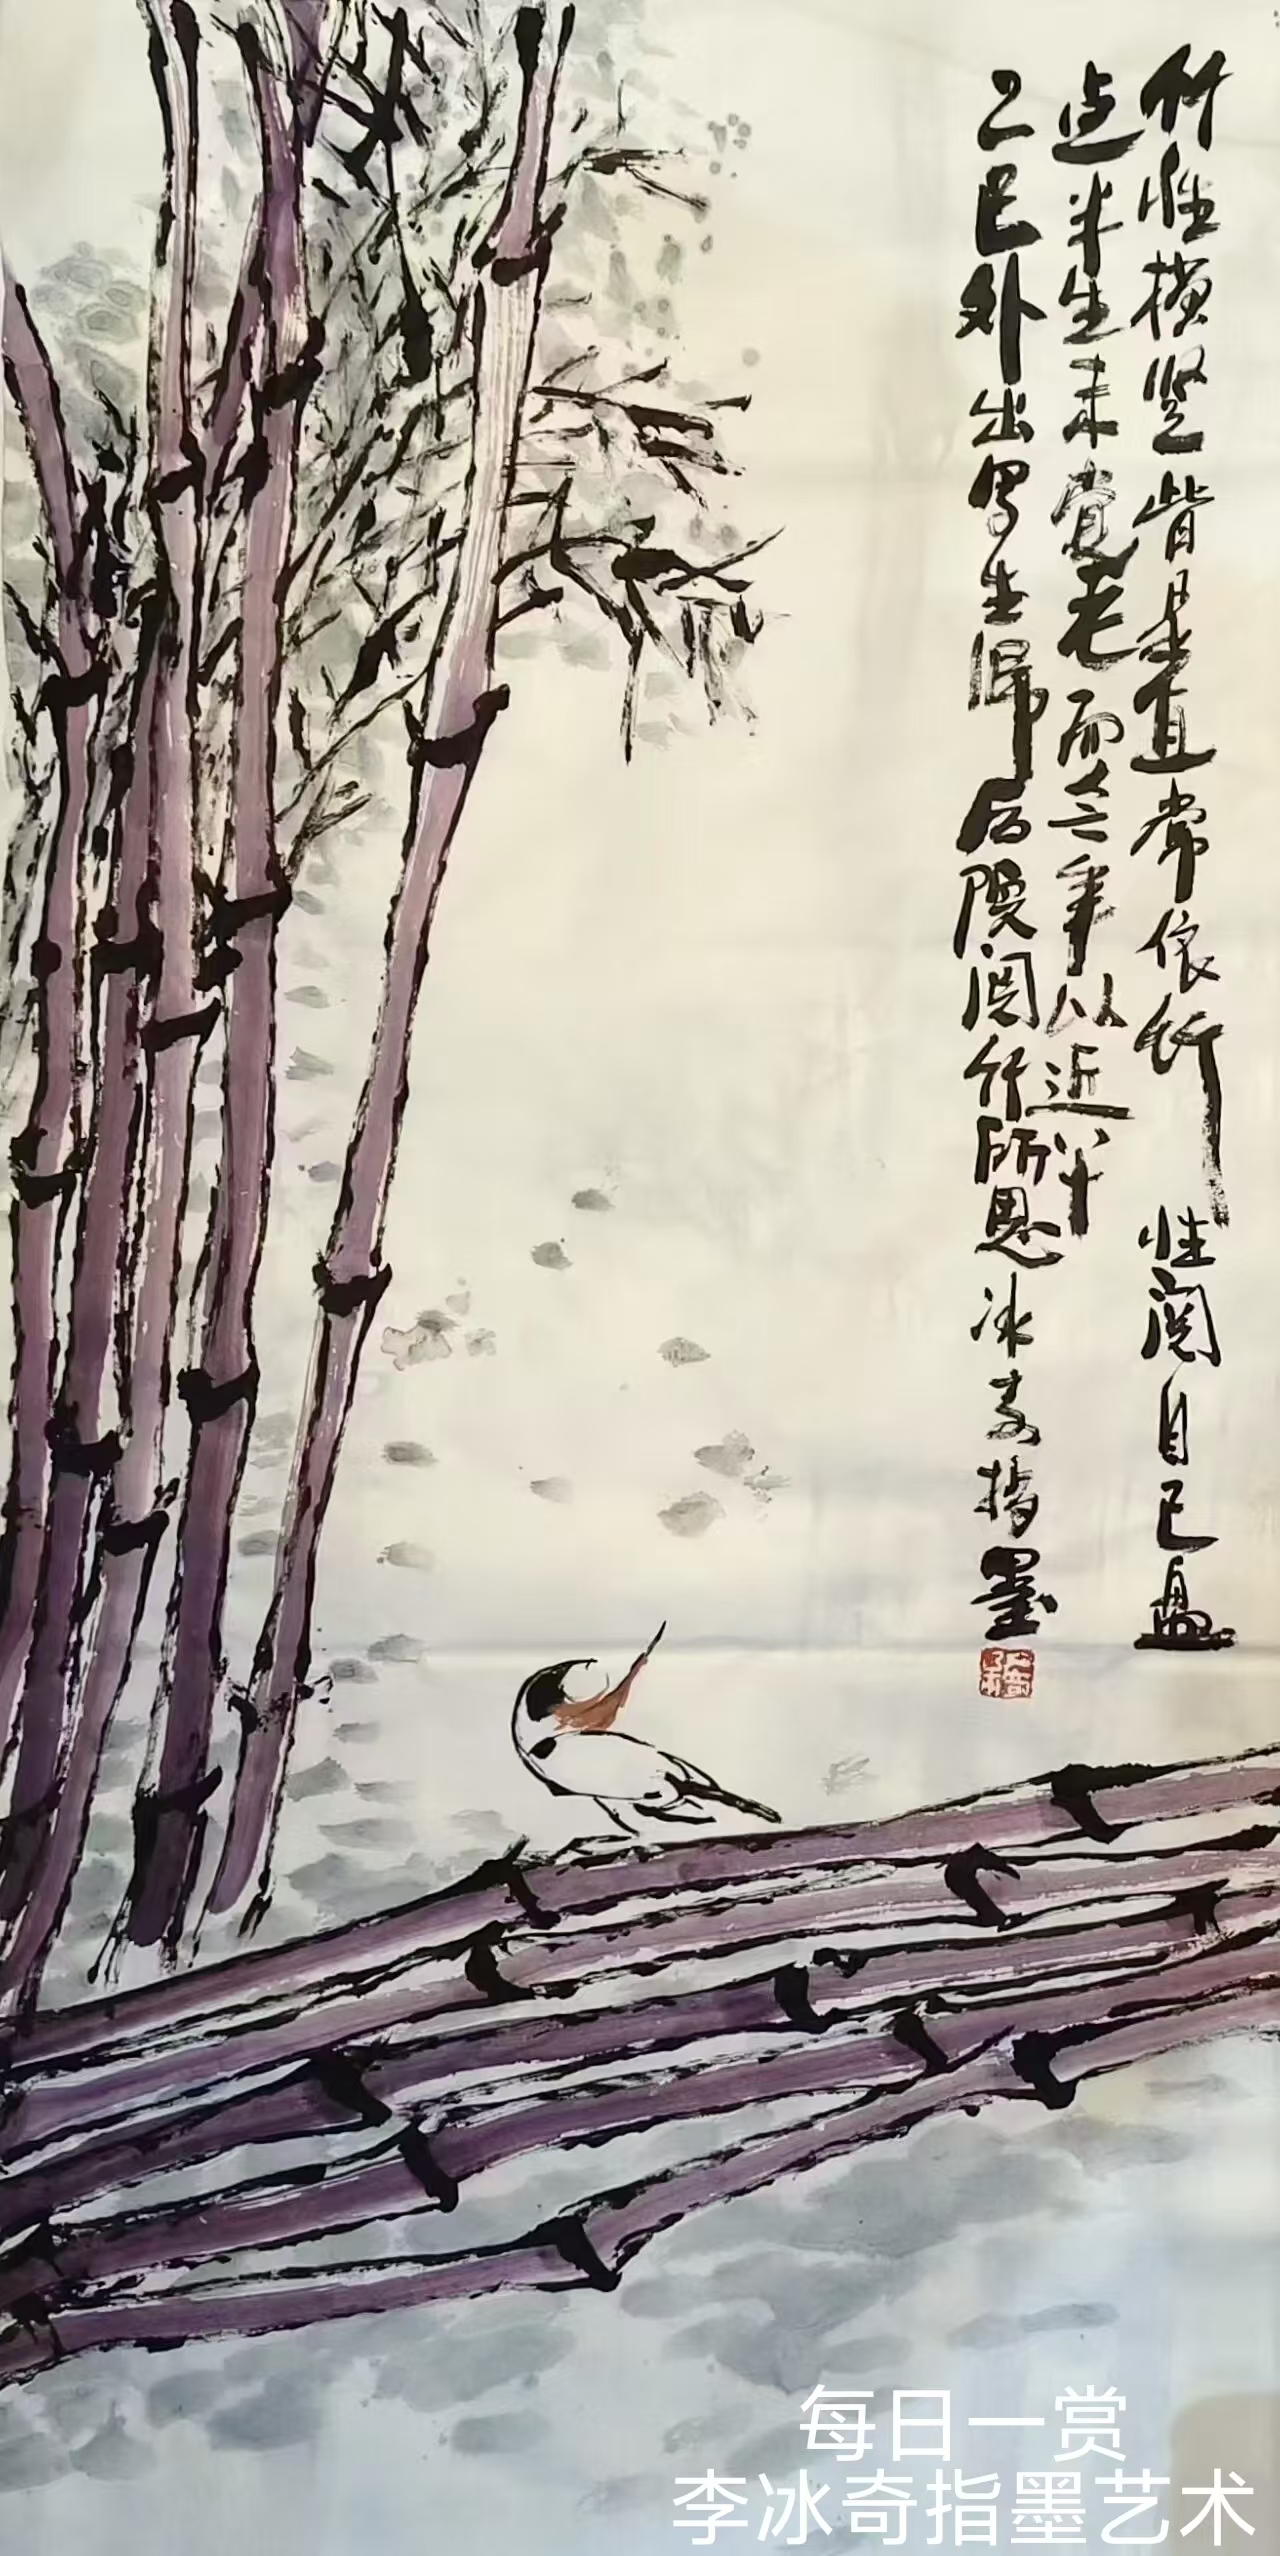 竹性横竖皆是直常依竹 性阅自己盘
点半生未觉老而今年以近八十
乙巳外出写生归后随阅竹师思冰奇指墨
每日一赏
李冰奇指墨艺术